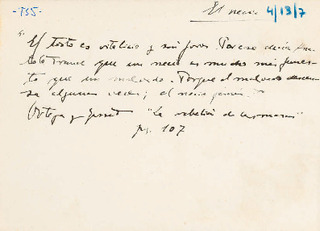 -755-
El necio
4/13/7
"El tonto es vitalicio y sin poros. Por eso decía Ana-
tole France que un necio es mucho más funes-
to que un malvado. Porque el malvado descan-
sa algunas veces; el necio jamás."
Ortega y Gasset "La rebelión de las masas"
pg. 107